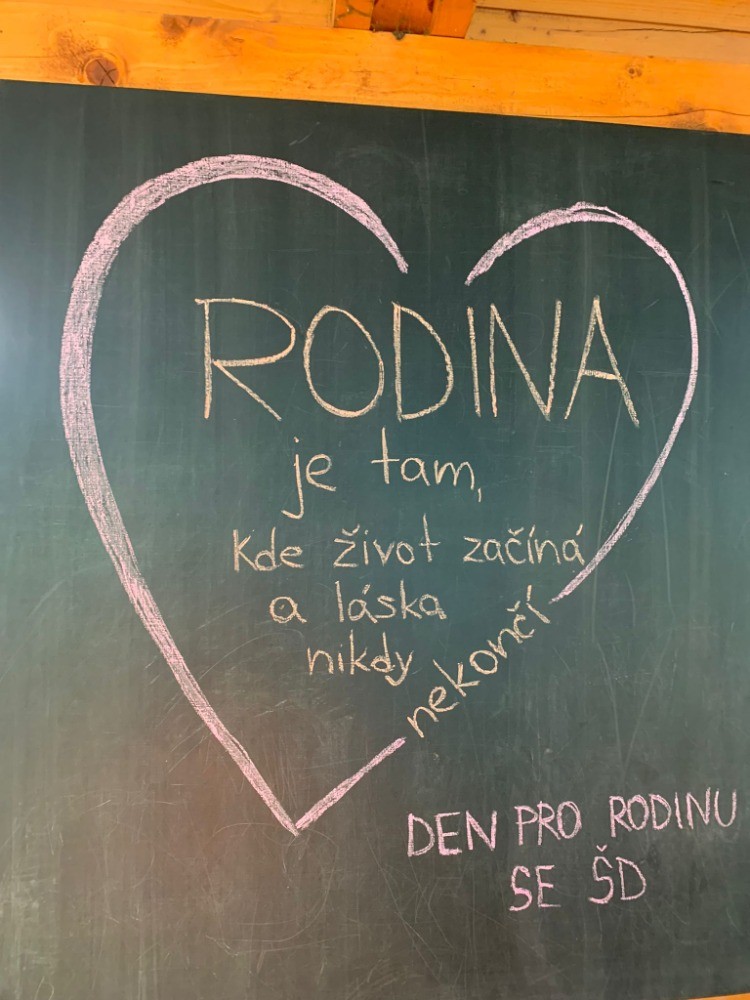 RODINA
je tam,
kde život začíná
a láska
nikdy
nekončí
DEN PRO RODINU
SE ŠD